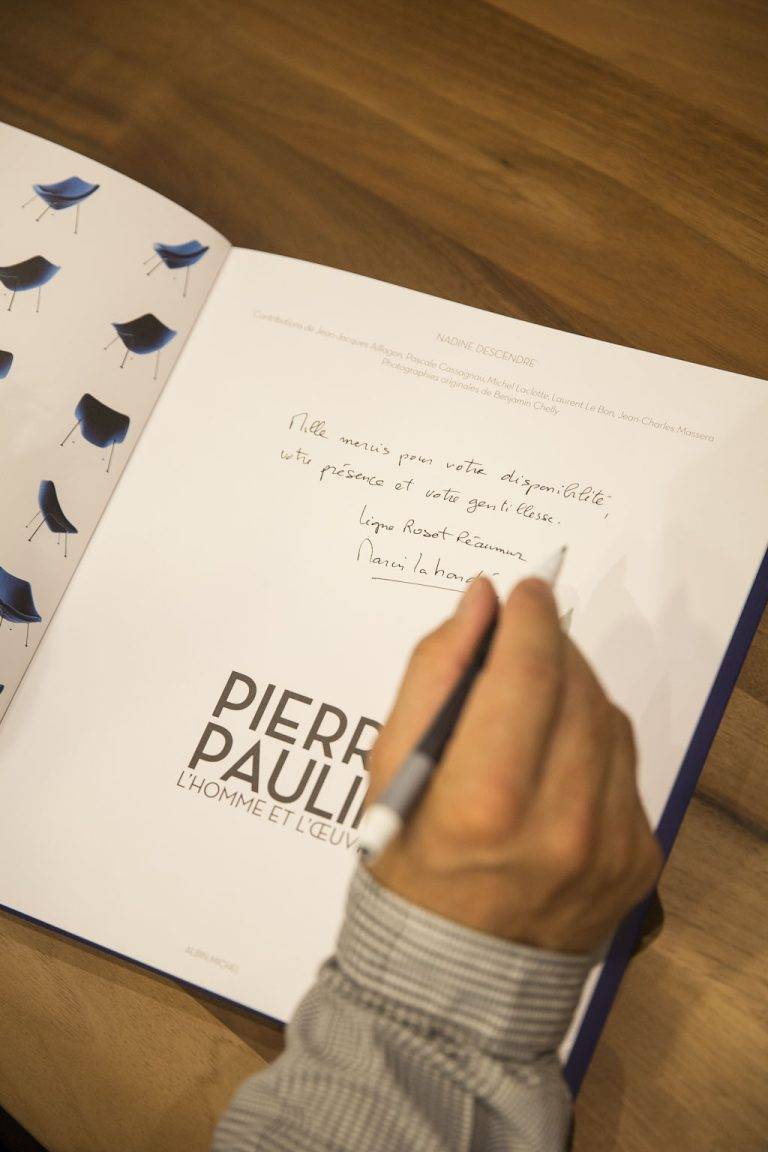 NADINE DESCENDRE
Contributions de Jean-Jacques Aillagon, Pascale Cassagnau, Michel Laclotte, Laurent Le Bon, Jean-Charles Massera
Photographies originales de Benjamin Chelly
Mille mercis pour votre disponibilité,
votre présence et votre gentillesse.
Ligne Roset Réaumur
PIERR
PAULI
L'HOMME ET L'ŒUV
ALBIN MICHEL